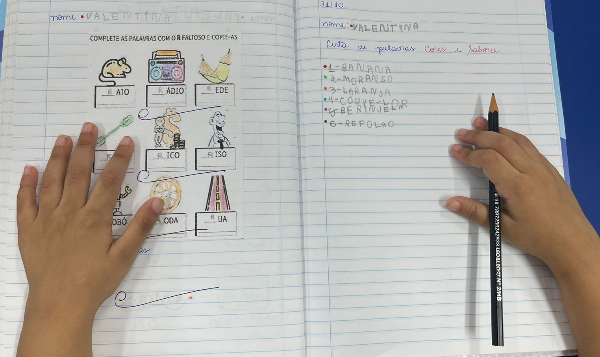 nome • VALENTINA
COMPLETE AS PALAVRAS COM O R FALTOSO E COPIE-AS
R ATO
R ÁDIO
R EDE
R ICO
R ISO
OBÔ
ODA
R UA
nome • VALENTINA
Lista de palavras Cores e Sabores
1-BANANA
2-MORANGO
3-LARANJA
4-COUVE-LOR
5-BERINJELA
6-REPOLAO